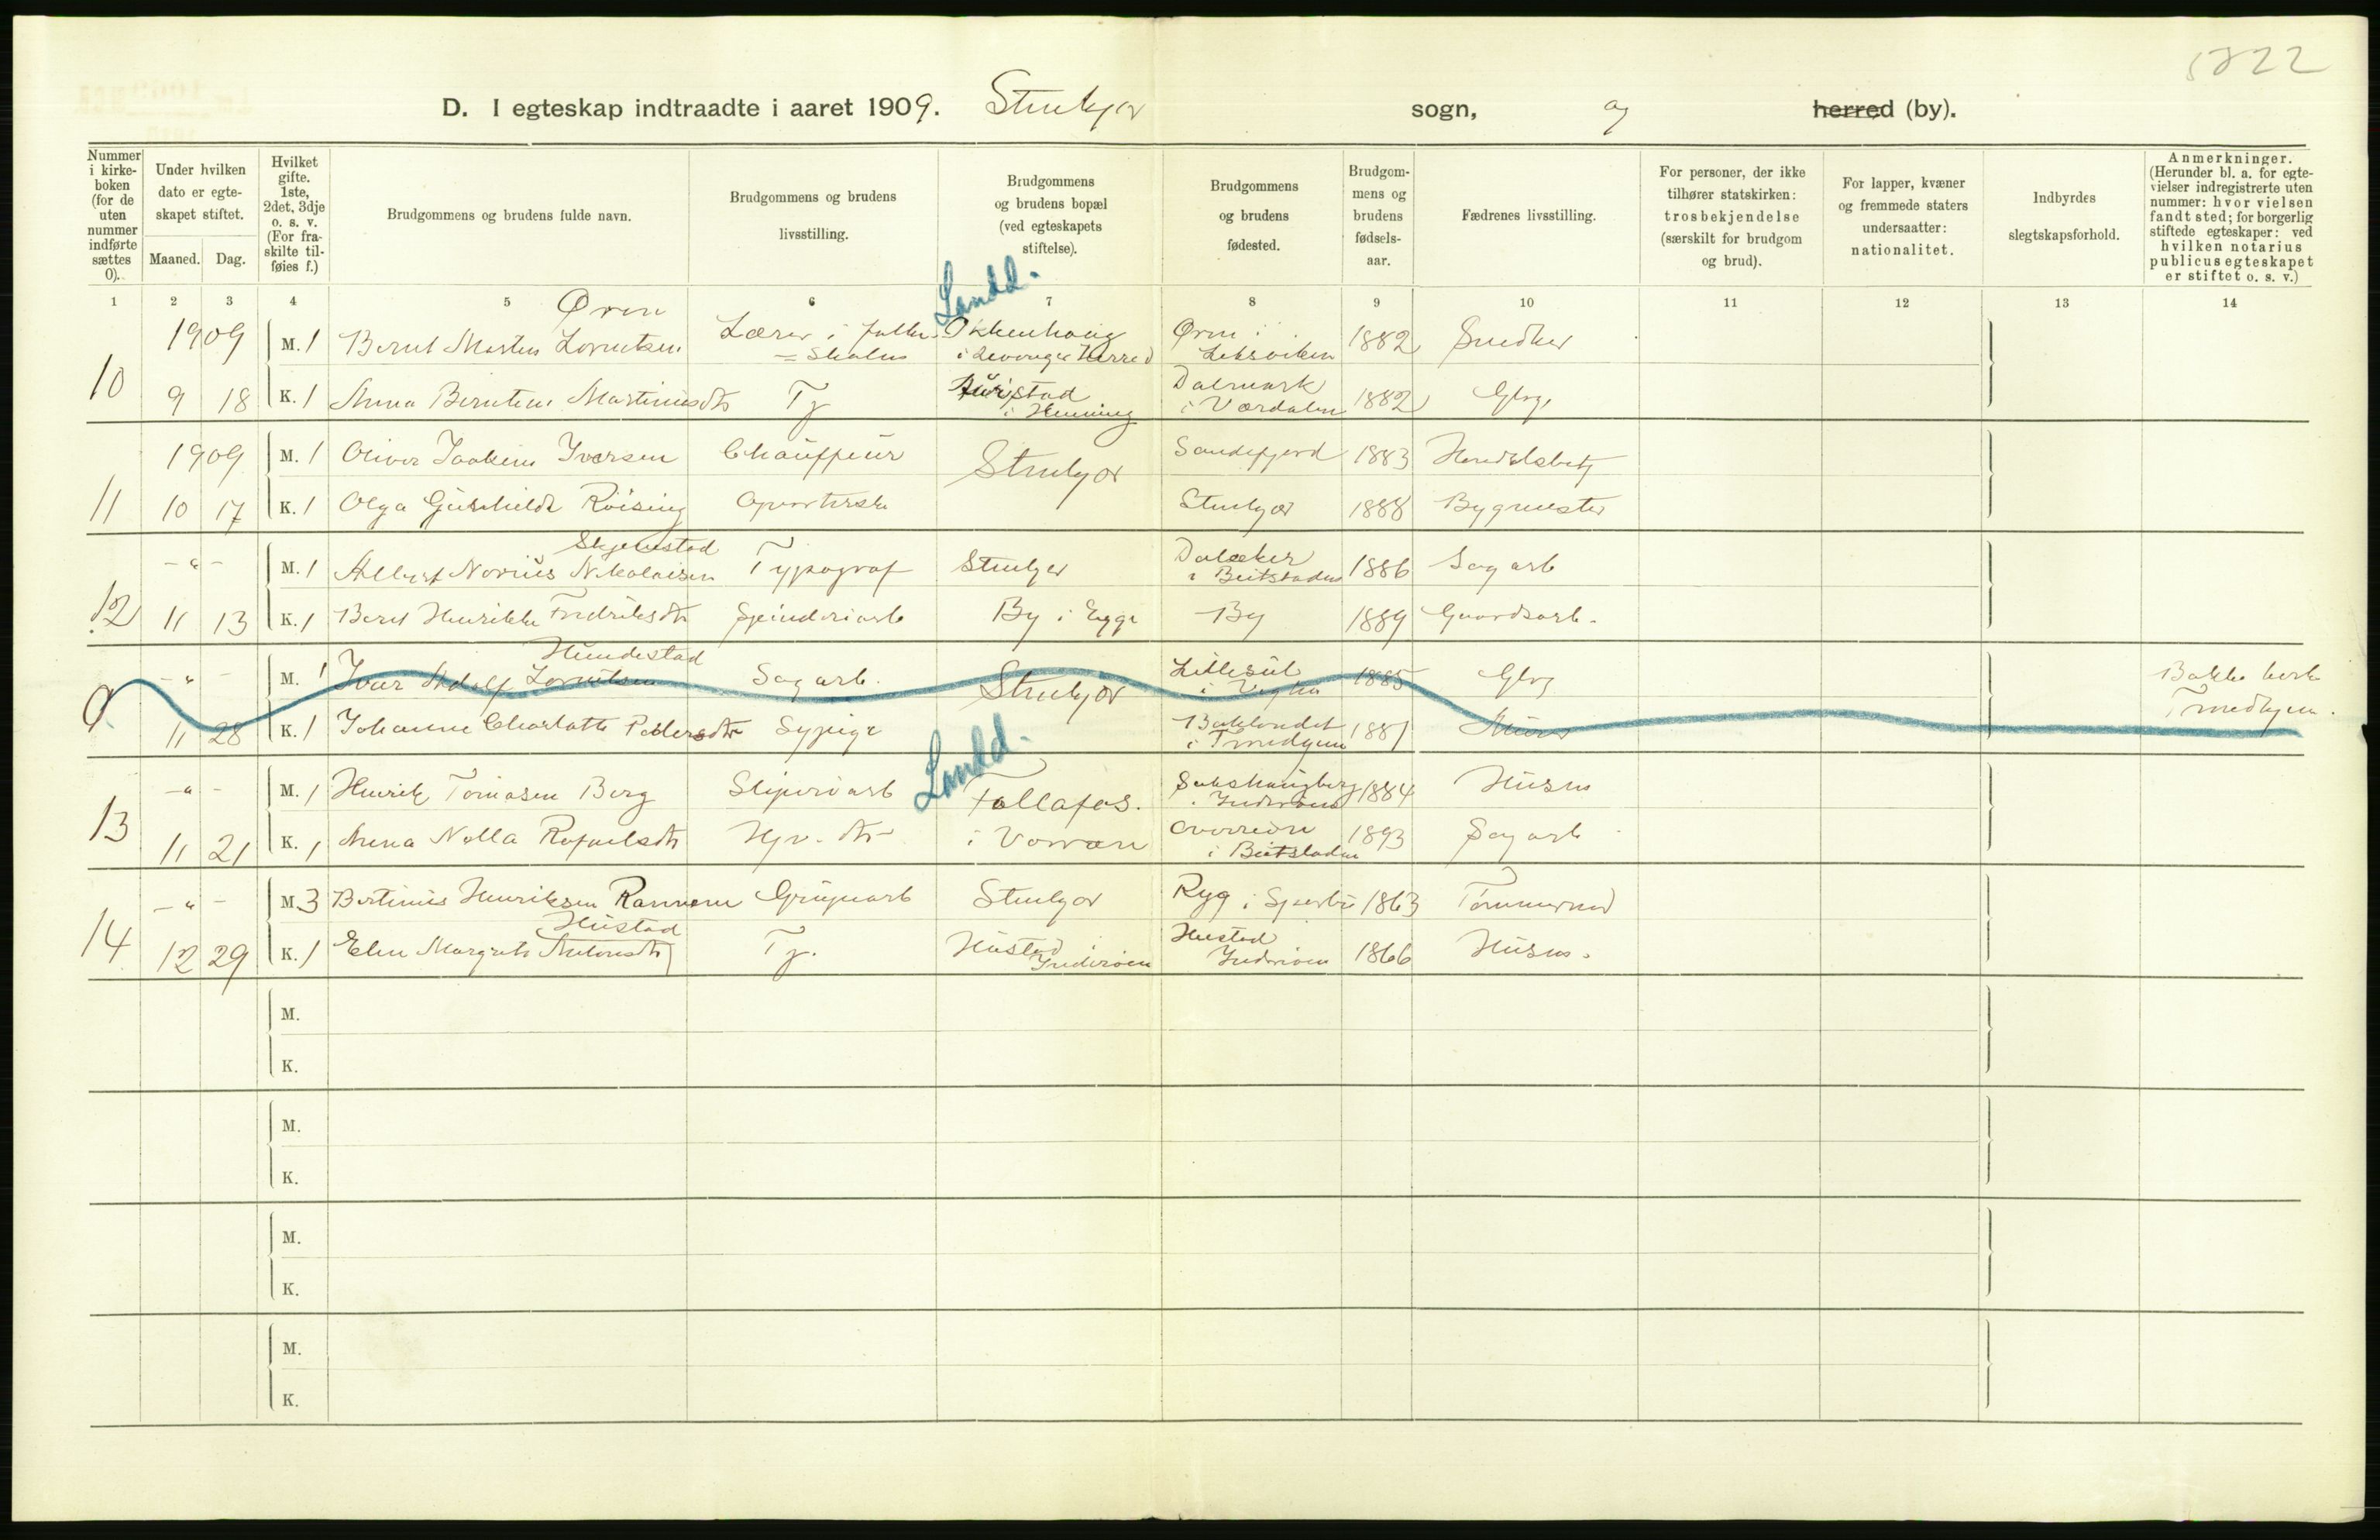 1822
D. I egteskap indtraadte i aaret 1909. Stenkjær sogn, og herred (by).
Nummer i kirkeboken (for de uten nummer indførte sættes 0).
Under hvilken dato er egteskapet stiftet.
Maaned. Dag.
Hvilket gifte. 1ste, 2det, 3dje o. s. v. (For fraskilte tilføies f.)
Brudgommens og brudens fulde navn.
Brudgommens og brudens livsstilling.
Brudgommens og brudens bopæl (ved egteskapets stiftelse).
Brudgommens og brudens fødested.
Brudgommens og brudens fødselsaar.
Fædrenes livsstilling.
For personer, der ikke tilhører statskirken: trosbekjendelse (særskilt for brudgom og brud).
For lapper, kvæner og fremmede staters undersaatter: nationalitet.
Indbyrdes slegtskapsforhold.
Anmerkninger. (Herunder bl. a. for egtevielser indregistrerte uten nummer: hvor vielsen fandt sted; for borgerlig stiftede egteskaper: ved hvilken notarius publicus egteskapet er stiftet o. s. v.)
1 2 3 4 5 6 7 8 9 10 11 12 13 14
Landd.
Øren
1909 M. 1 Bernt Martin Lorentsen Lærer i folke=skolen i Levanger Herred Øren i Leksviken 1882 Snedker
10 9 18 K. 1 Anna Berntine Martinusdtr Tj i Henning Dalmark i Værdalen 1882 Gbrg.
1909 M. 1 Oliver Joakim Iversen Chauffeur Stenkjær Sandefjord 1883 Handelsbetj
11 10 17 K. 1 Olga Gunhilde Røising Stenkjær 1888 Bygmester
Skjelstad
- " - M. 1 Albert Norius Nikolaisen Typograf Stenkjær Dalæker i Beitstaden 1886 Sagarb
12 11 13 K. 1 Berit Henrikke Fredriksdtr Spinderiarb By i Egge By 1889 Gaardsarb.
Hundestad
- " - M. 1 Ivar Adolf Lorentsen Sagarb. Stenkjær 1885 Gbrg Bakke kirke Trondhjem.
0 11 28 K. 1 Johanne Charlotte Pedersdtr Sypige Baklandet i Trondhjem 1881 Murer
Landd.
- " - M. 1 Henrik Tomasen Berg Sliperiarb Follafos. i Inderøen 1884 Husm
13 11 21 K. 1 Anna Nella Rafaelsdtr Hjv. dtr i Værran i Beitstaden 1893 Sagarb
- " - M. 3 Bertinus Henriksen Rannem Stenkjær Ryg i Sparbu 1863 Tømmermd
Hustad
14 12 29 K. 1 Elen Margrete Antonsdtr Tj. Hustad Inderøen Hustad Inderøen 1866 Husm.
M.
K.
M.
K.
M.
K.
M.
K.